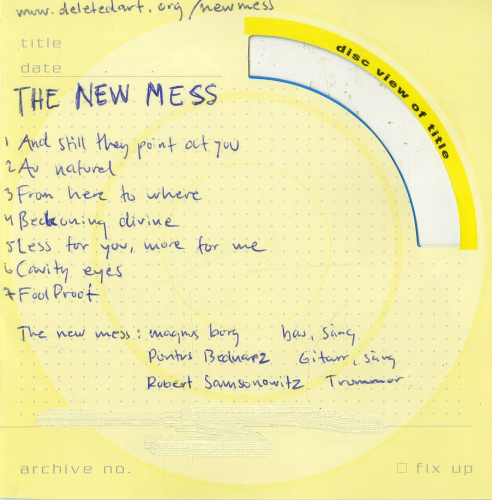 www.deletedart.org/newmess
title
date
disc view of title
THE NEW MESS
1 And still they point at you
2 Au naturel
3 From here to where
4 Beckoning divine
5 Less for you, more for me
6 Cavity eyes
7 FoolProof
The new mess: magnus borg bas, sång
Pontus Bednarz Gitarr, sång
Robert Samsonowitz Trummor
archive no. fix up